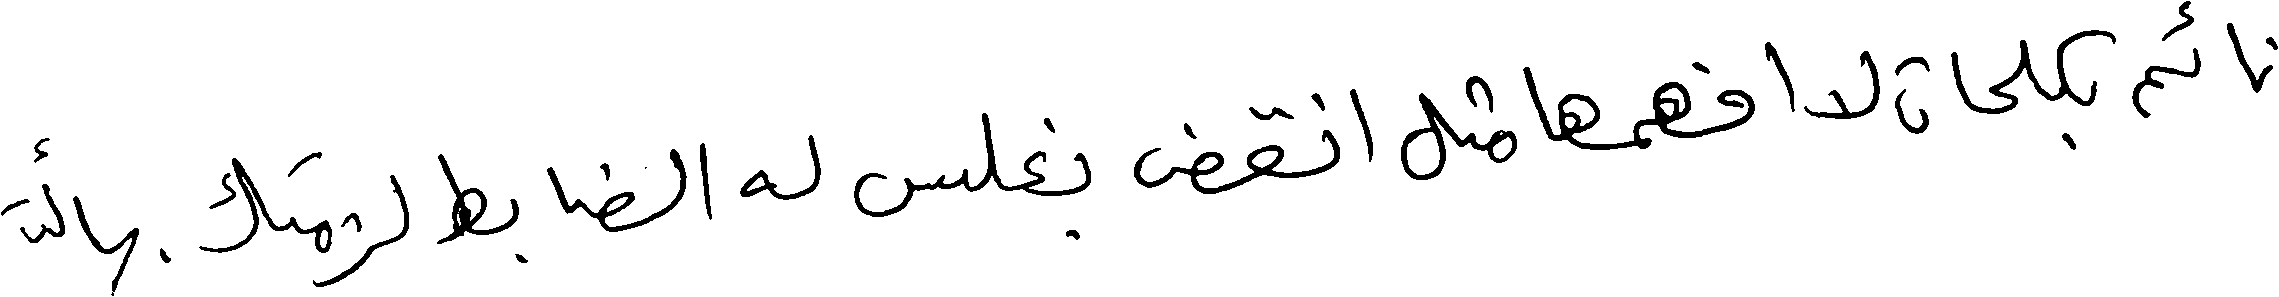 نائم بكلمات لا افهمها مثل انقض بغلس له الضابط لرمتك. سألت